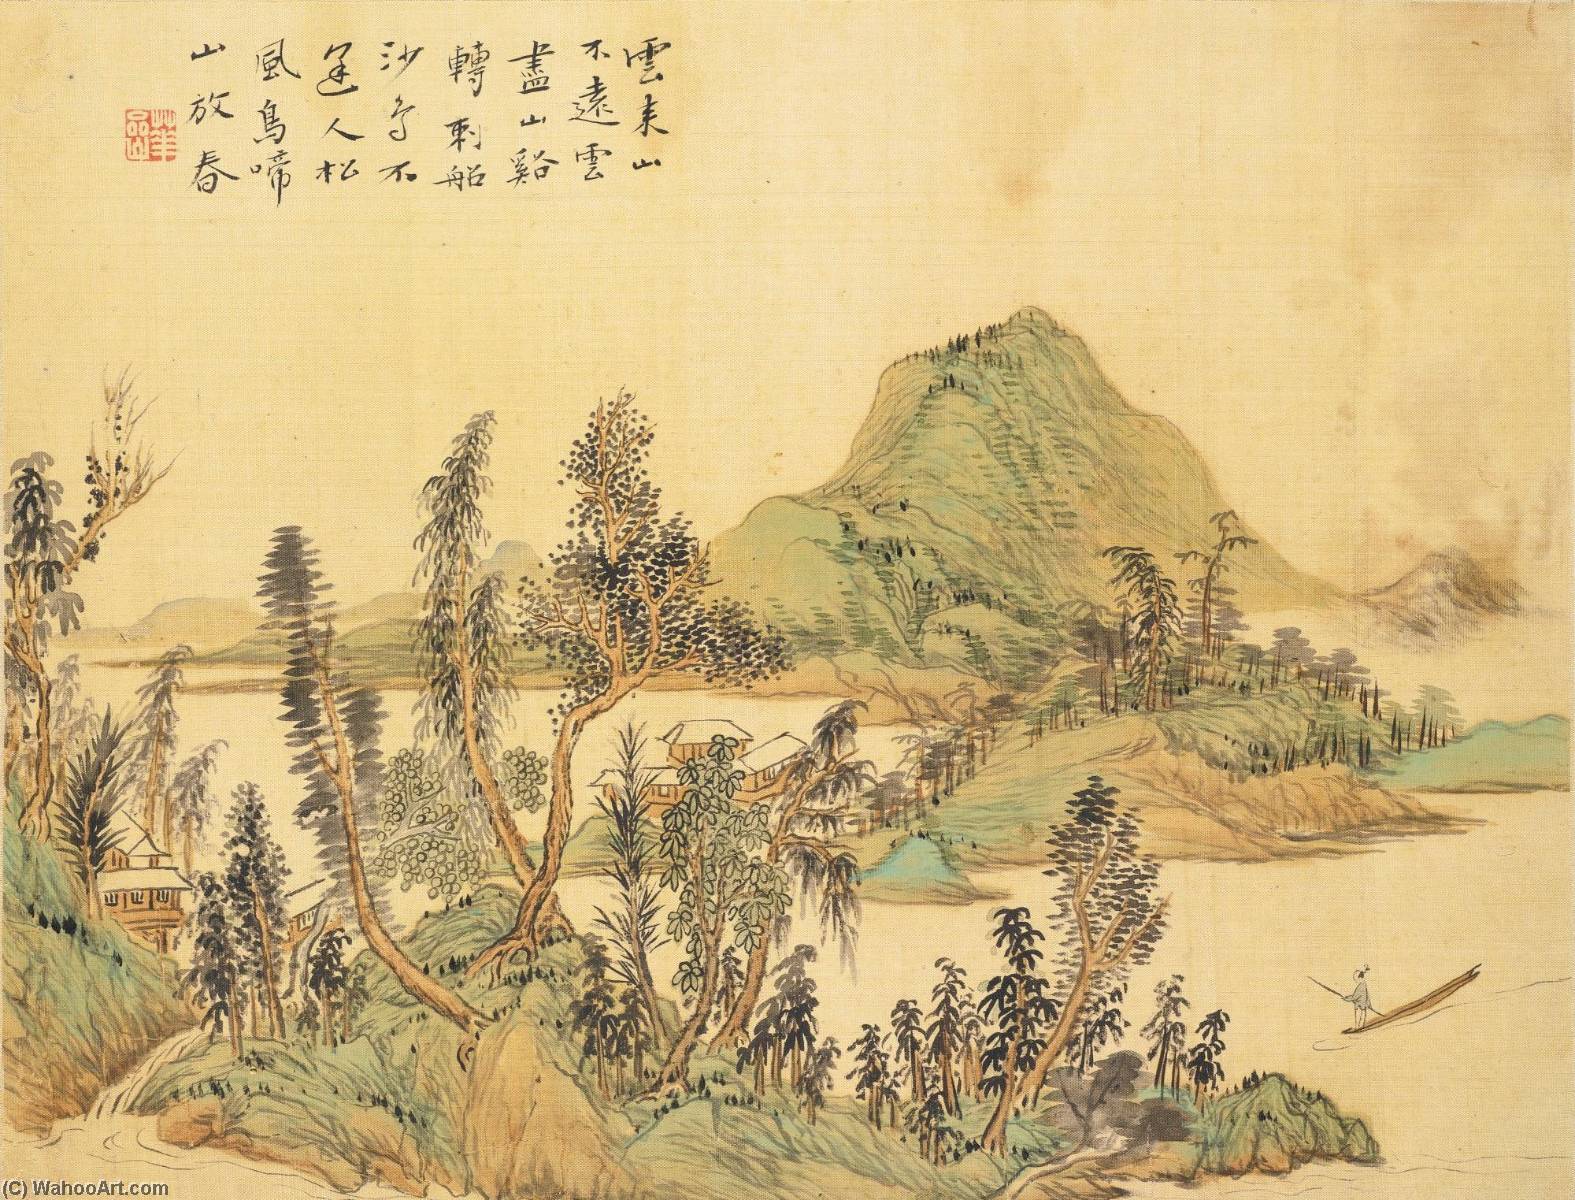 雲來山
不遠雲
盡山谿
轉刺船
沙鳥不
逢人松
風鳥啼
山放春
華嵒
(C) WahooArt.com